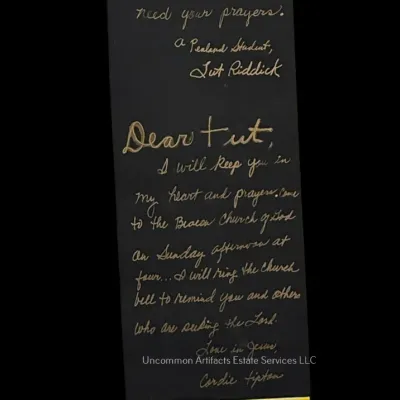 need your prayers.
a Penland Student,
Tut Riddick
Dear Tut,
I will keep you in
my heart and prayers. Come
to the Beacon Church of God
on Sunday afternoon at
four... I will ring the church
bell to remind you and others
who are seeking the Lord.
Love in Jesus,
Uncommon Artifacts Estate Services LLC
Cordie Tipton